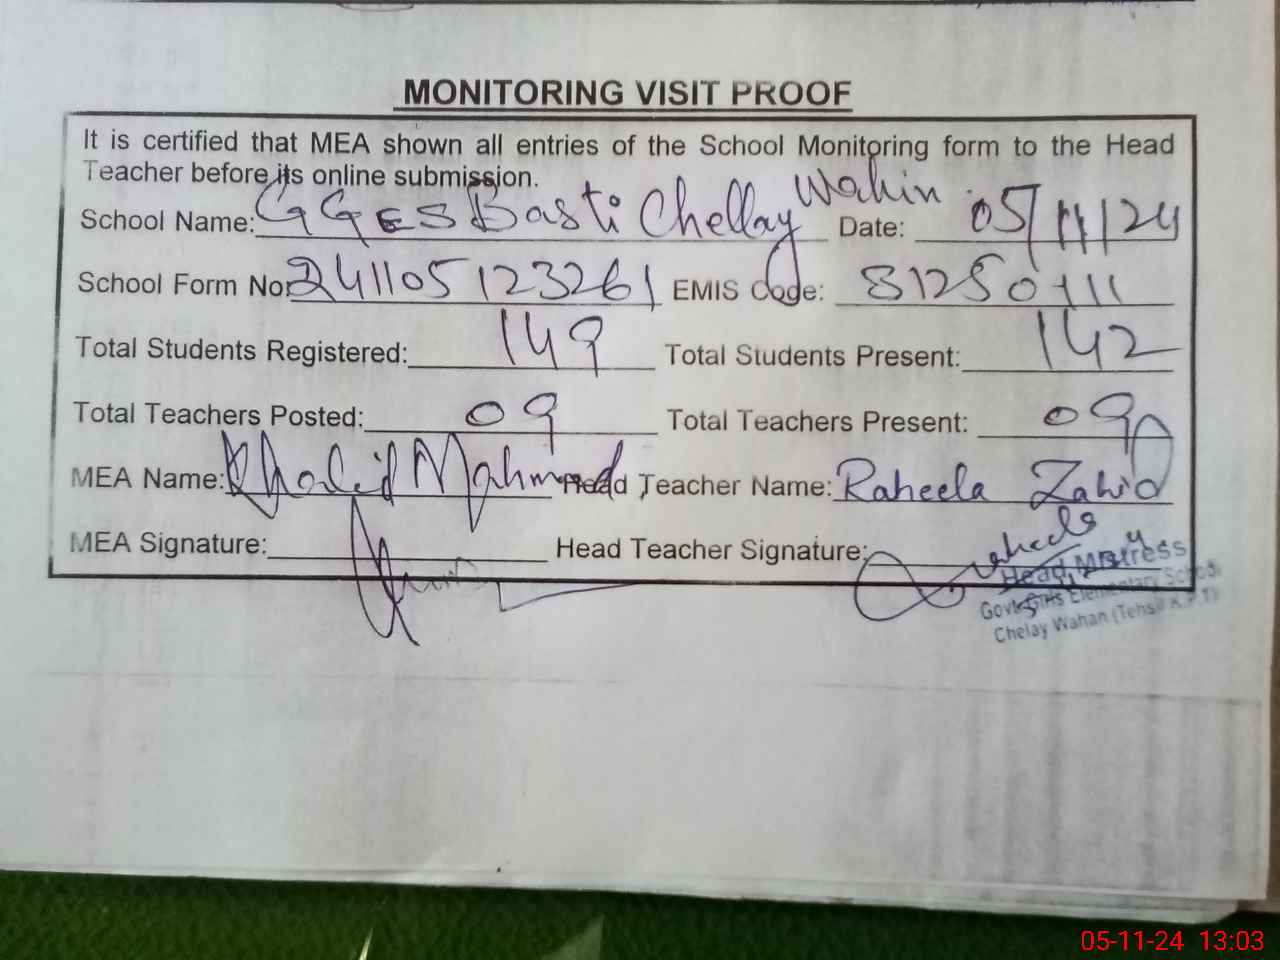 MONITORING VISIT PROOF
It is certified that MEA shown all entries of the School Monitoring form to the Head
Teacher before its online submission.
School Name: GGES Basti Chellay Wahin Date: 05/11/24
School Form No: 241105123261 EMIS Code:
Total Students Registered: 149 Total Students Present: 142
Total Teachers Posted: 09 Total Teachers Present: 09
MEA Name: Khalid Mahmood Head Teacher Name: Raheela Zahid
MEA Signature: Head Teacher Signature:
Head Mistress
Govt. Girls Elementary School
Chelay Wahan (Tehsil K.P.T)
05-11-24 13:03